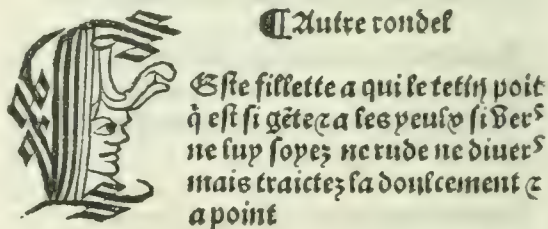 ¶ Autre rondel
Ceste fillette a qui le tetin poit
q̃ est si gẽte ⁊ a les peulx si vers
ne luy soyez ne rude ne diuers
mais traictez la doulcement ⁊
a point